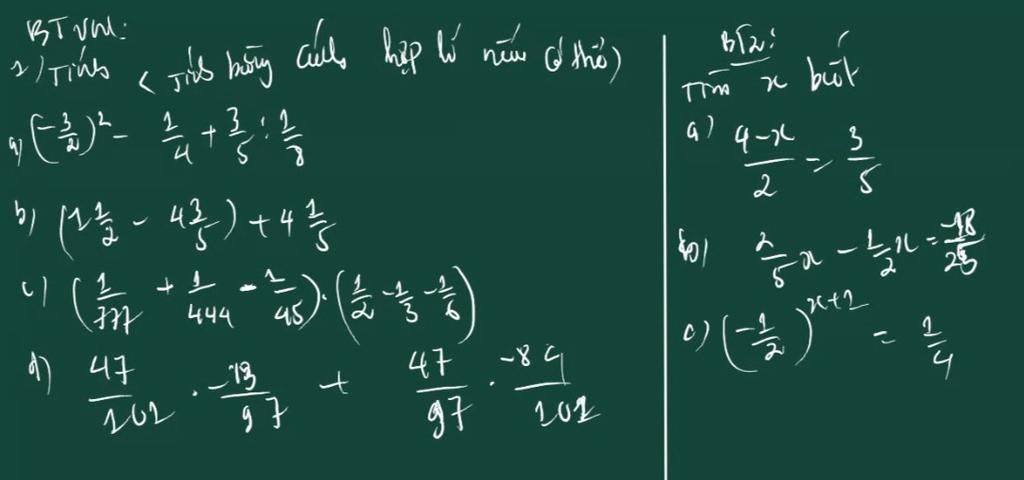 BTVN:
1) Tính (Tính bằng cách hợp lí nếu có thể)
a) (-3/2)² - 1/4 + 3/5 : 1/8
b) (1 1/2 - 4 3/5) + 4 1/5
c) (1/777 + 1/444 - 1/45) . (1/2 - 1/3 - 1/6)
d) 47/101 . -13/97 + 47/97 . -89/101
BT2:
Tìm x biết
a) (4-x)/2 = 3/5
b) 2/5x - 1/2x = -18/25
c) (-1/2)^(x+1) = 1/4